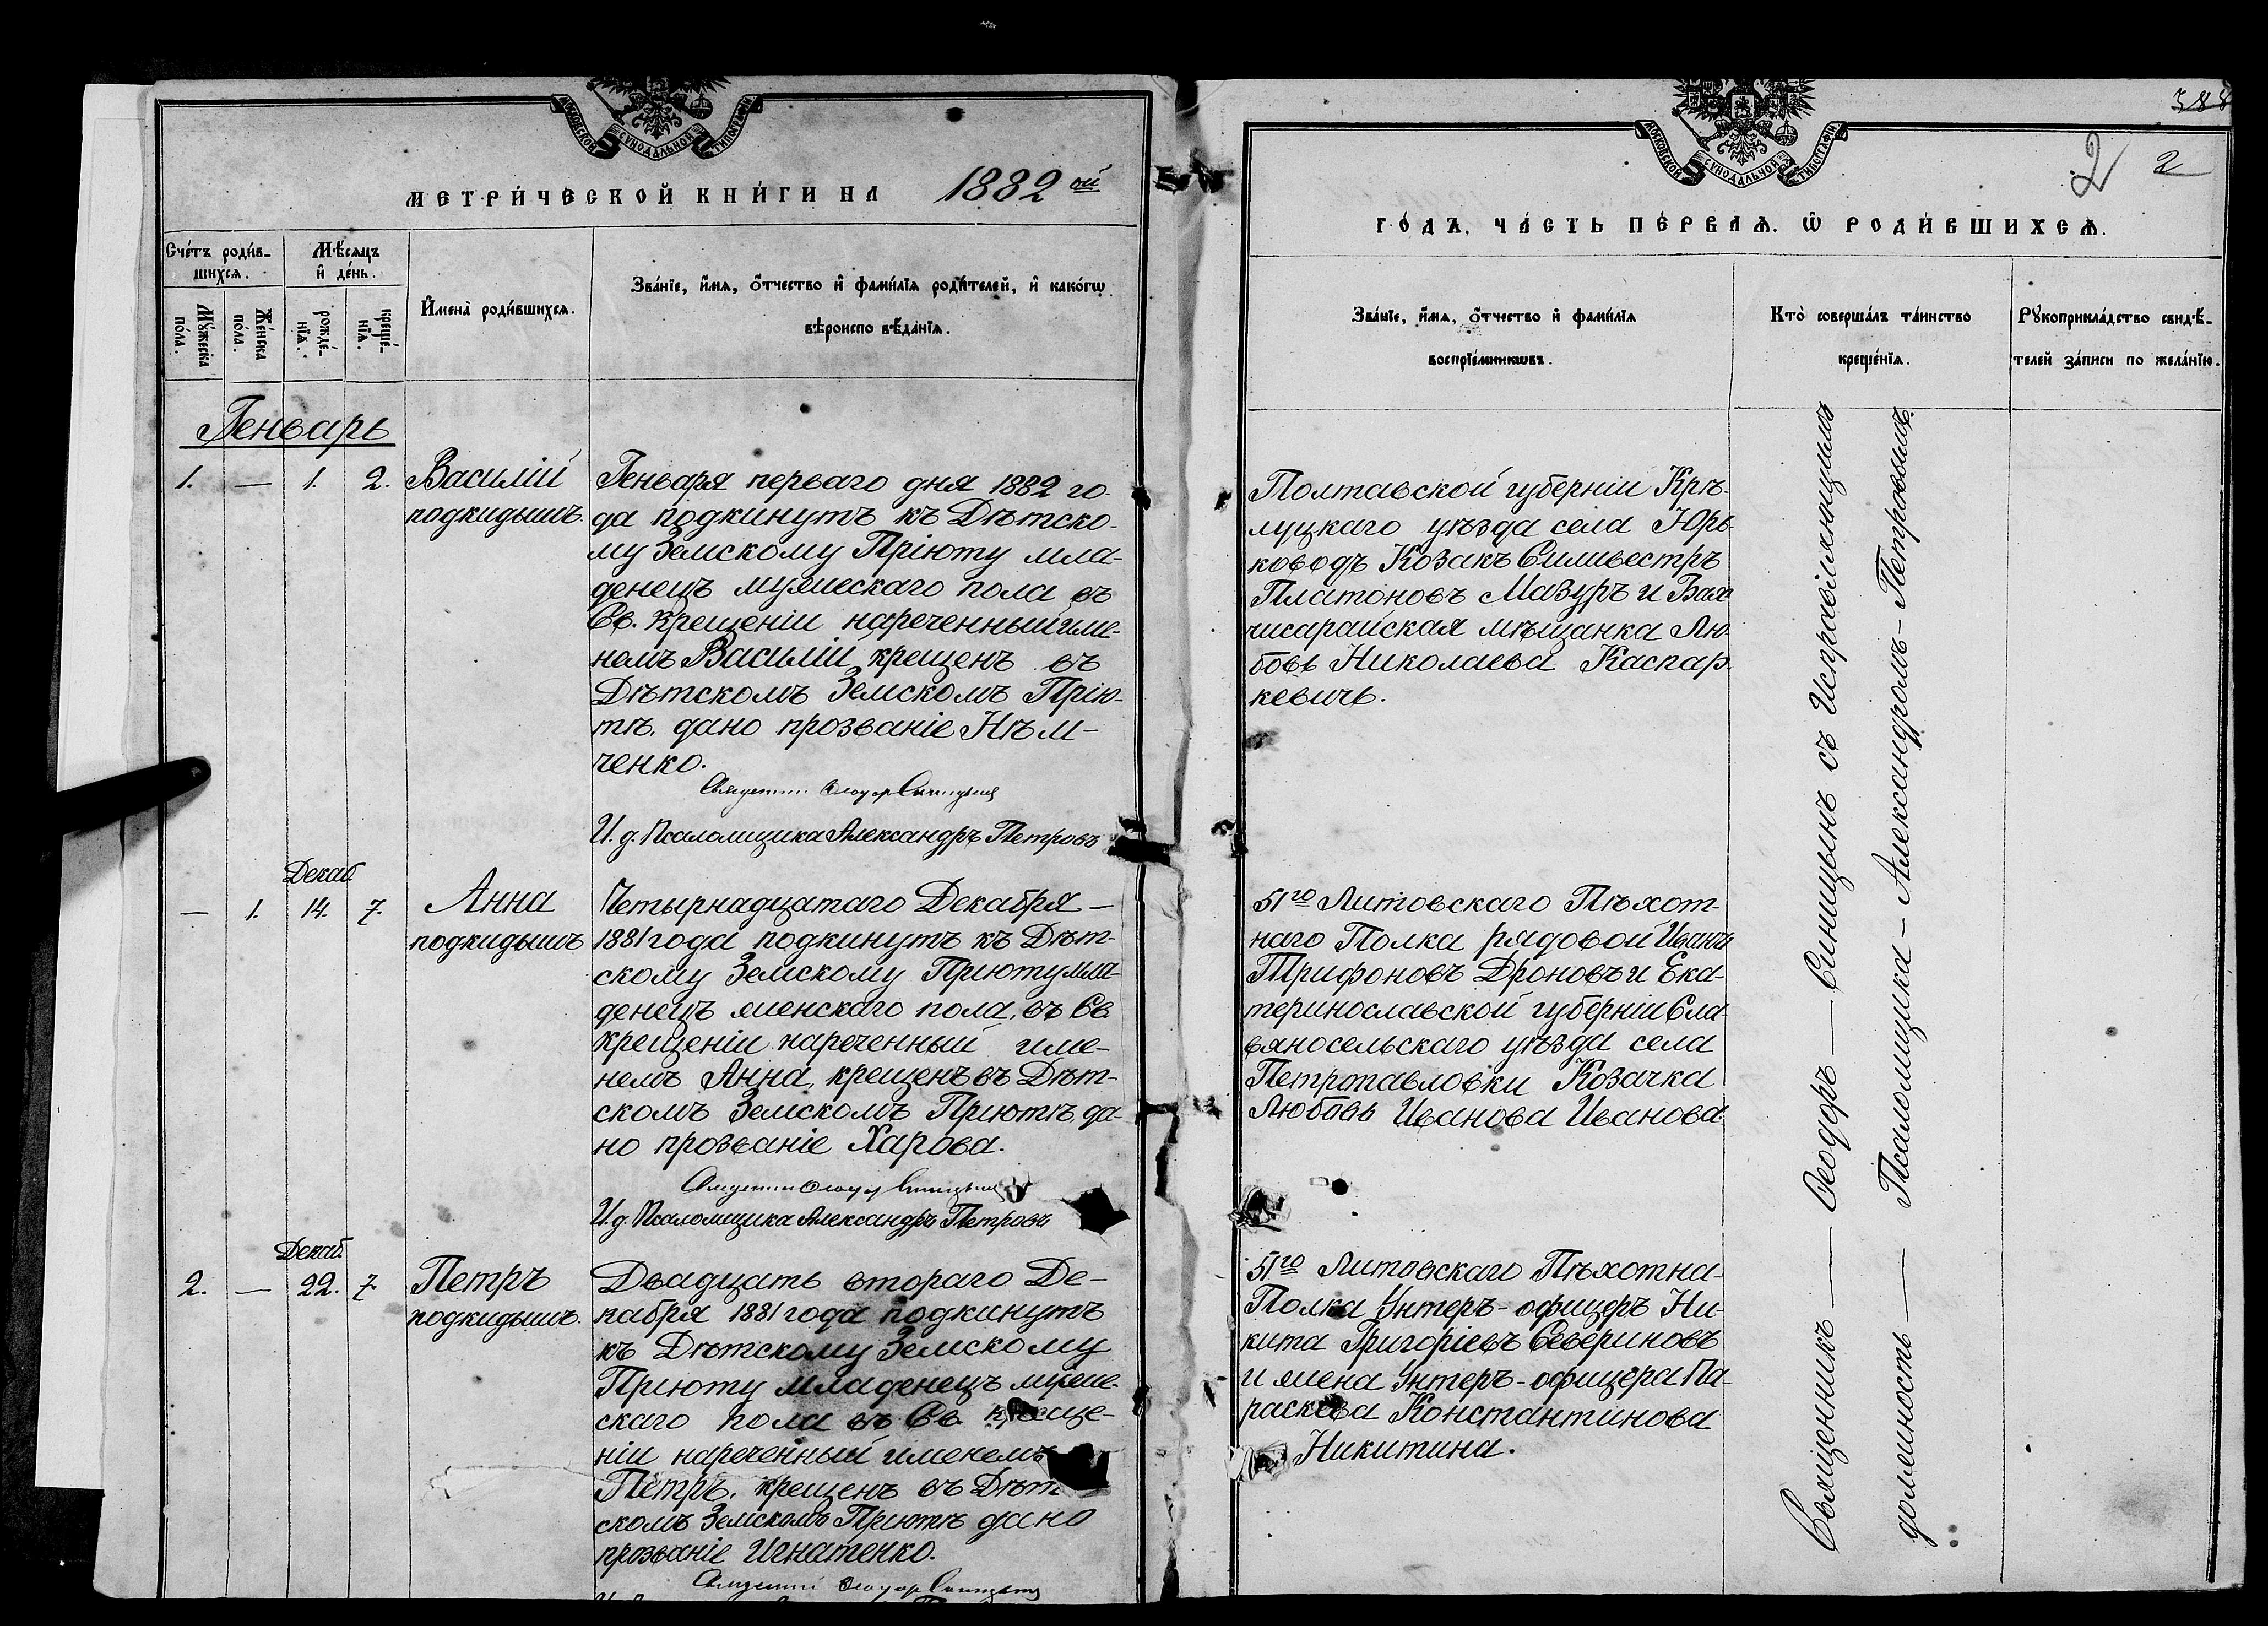 МОСКОВСКОЙ СѴНОДАЛЬНОЙ ТИПОГРАФІИ
МЕТРИ́ЧЕСКОЙ КНИ́ГИ НА 1882 ой
Сче́тъ роди́в-
шихсѧ.
Мѣ́сѧцъ
и҆ де́нь.
Мꙋ́жеска
по́ла.
Же́нска
по́ла.
рожде́-
нїѧ.
креще́-
нїѧ.
И҆мена̀ роди́вшихсѧ.
Зва́нїе, и҆́мѧ, ѻ҆́тчество и҆ фами́лїѧ роди́телей, и҆ како́гѡ
вѣроиспо вѣ́данїѧ.
Генварь
1. — 1. 2.
Василій
подкидышъ.
Генваря перваго дня 1882 го-
да подкинутъ къ Дѣтско-
му Земскому Пріюту мла-
денецъ мужескаго пола въ
Св. Крещеніи нареченный име-
немъ Василій, крещенъ въ
Дѣтскомъ Земскомъ Прію-
тѣ, дано прозваніе Нѣм-
ченко.
Священникъ Ѳеодоръ Синицынъ
И. д. Псаломщика Александръ Петровъ
Декаб.
— 1. 14. 7.
Анна
подкидышъ
Четырнадцатаго Декабря —
1881 года подкинутъ къ Дѣт-
скому Земскому Пріюту мла-
денецъ женскаго пола, въ Св.
Крещеніи нареченный име-
немъ Анна, крещенъ въ Дѣт-
скомъ Земскомъ Пріютѣ, да-
но прозваніе Харова.
Священникъ Ѳеодоръ Синицынъ
И. д. Псаломщика Александръ Петровъ
Декаб.
2. — 22. 7.
Петръ
подкидышъ.
Двадцать втораго Де-
кабря 1881 года подкинутъ
къ Дѣтскому Земскому
Пріюту младенецъ муже-
скаго пола въ Св. Креще-
ніи нареченный именемъ
Петръ, крещенъ въ Дѣт
скомъ Земскомъ Пріютѣ дано
прозваніе Игнатенко.
Священникъ Ѳеодоръ Синицынъ
388
МОСКОВСКОЙ СѴНОДАЛЬНОЙ ТИПОГРАФІИ
2 2
ГО́ДЪ, ЧА́СТЬ ПЕ́РВАѦ. Ѽ РОДИ́ВШИХСѦ.
Зва́нїе, и҆́мѧ, ѻ҆́тчество и҆ фами́лїѧ
воспрїе́мникѡвъ.
Кто̀ соверша́лъ та́инство
креще́нїѧ.
Рꙋкоприкла́дство свидѣ́-
телей за́писи по жела́нїю.
Полтавской губерніи Крѣ-
луцкаго уѣзда села Юрь-
ководъ Козакъ Сильвестръ
Платоновъ Мазуръ и Бах
чисарайская мѣщанка Лю-
бовь Николаева Каспар-
кевичъ.
51го Литовскаго Пѣхот-
наго Полка рядовой Иванъ
Трифоновъ Дроновъ и Ека-
теринославской губерніи Сла
вяносельскаго уѣзда села
Петропавловки Козачка
Любовь Иванова Иванова.
51го Литовскаго Пѣхотна-
Полка Унтеръ-офицеръ Ни-
кита Григорьевъ Севериновъ
и жена Унтеръ-офицера Па-
раскева Константинова
Никитина.
Священникъ — Ѳеодоръ — Синицынъ съ Исправляющимъ
должность — Псаломщика — Александромъ — Петровымъ.